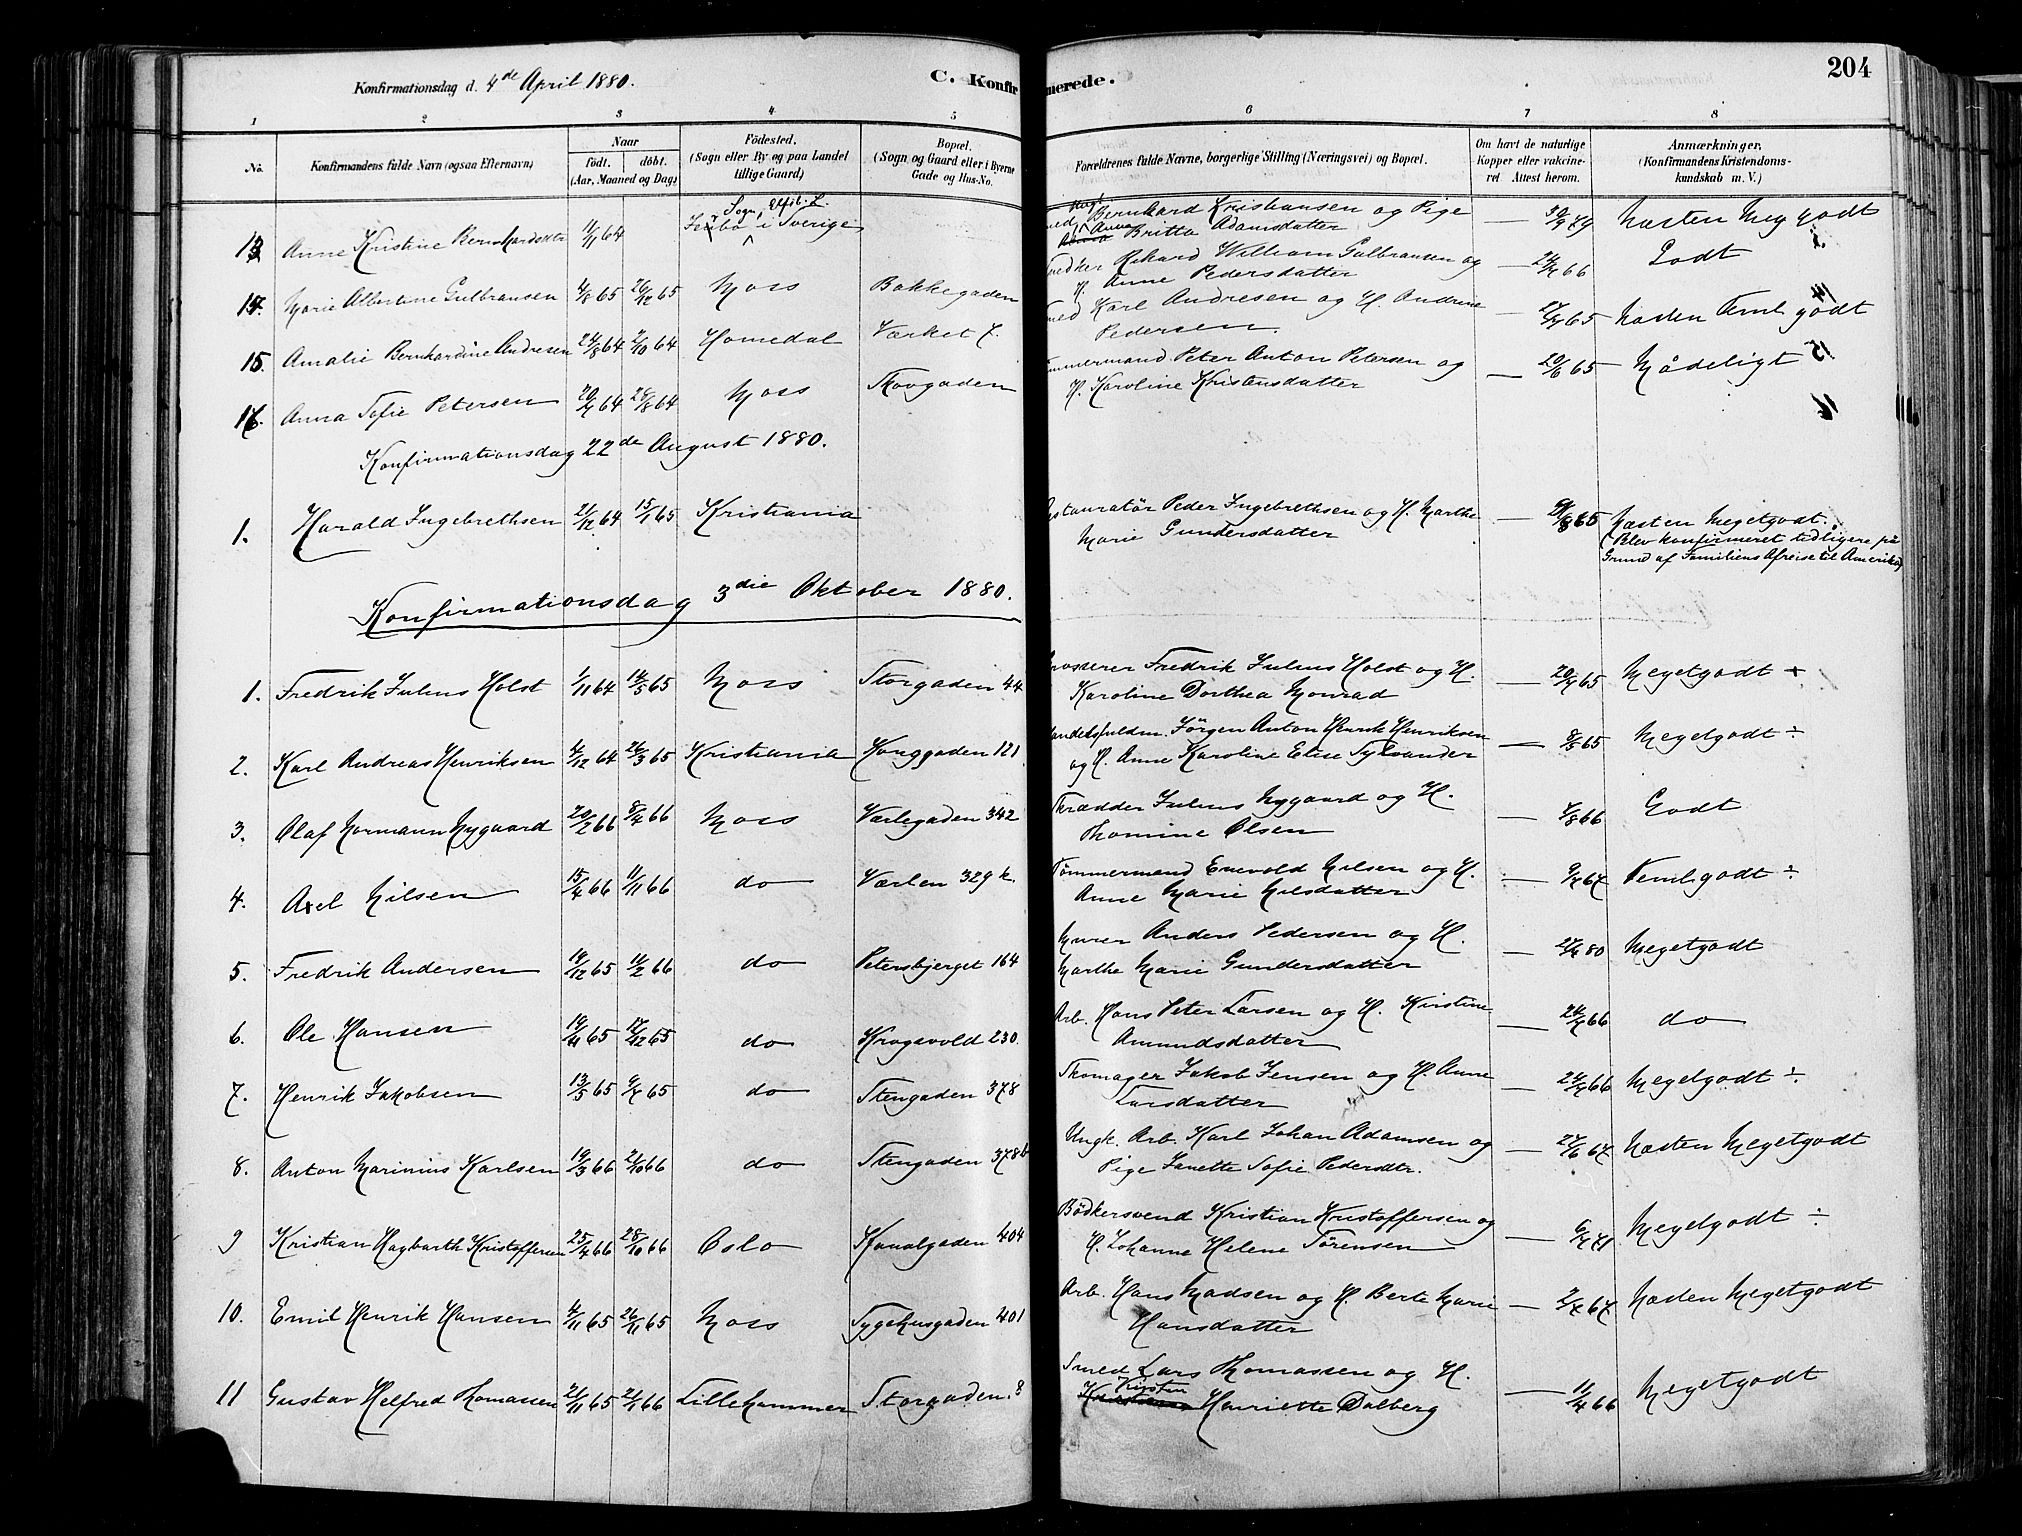 Konfirmationsdag d. 4de April 1880.
C. Konfirmerede.
204
1 2 3 4 5 6 7 8
No. Konfirmandens fulde Navn (ogsaa Efternavn) Naar født. døbt. (Aar, Maaned og Dag) Födested. (Sogn eller By og paa Landet tillige Gaard) Bopæl. (Sogn og Gaard eller i Byerne Gade og Hus-No. Forældrenes fulde Navne, borgerlige Stilling (Næringsvei) og Bopæl. Om havt de naturlige Kopper eller vakcineret Attest herom. Anmærkninger. (Konfirmandens Kristendomskundskab m. V.)
13 Anne Kristine Bernhardsdtr 11/11 64 Sogn, Elfsb. L. i Sverige Bernhard Kristiansen og Pige Anna Britta Adamsdatter — 30/9 79 Næsten Meg godt
14. Marie Albertine Gulbransen 4/8 65 26/12 65 Moss Bakkegaden Rikard William Gulbransen og H. Anne Pedersdatter — 24/4 66 Godt
15. Amalie Bernhardine Andresen 24/8 64 2/10 64 Homedal Værket 7. Karl Andresen og H. Andrine Pedersen. 65 Næsten Teml godt
16. Anna Sofie Petersen 64 28/8 64 Moss Skovgaden Peter Anton Petersen og H. Karoline Kristensdatter — 20/6 65 Mådeligt
Konfirmationsdag 22de August 1880.
1. Harald Ingebrethsen 21/12 64 15/1 65 Kristiania Peder Ingebrethsen og H. Marthe Marie Gundersdatter — 65 Næsten Megetgodt.
(Blev konfirmeret tidligere på
Grund af Familiens Afreise til Amerika)
Konfirmationsdag 3die Oktober 1880.
1. Fredrik Julius Holst 1/11 64 14/5 65 Moss Storgaden 44 Fredrik Julius Holst og H. Karoline Dorthea Monrad — 65 Megetgodt +
2. Karl Andreas Henriksen 4/12 64 26/3 65 Kristiania Konggaden 121 Jørgen Anton Henrik Henriksen og H. Anne Karoline Elise Sylvander — 8/5 65 Megetgodt ÷
3. Olaf Normann Nygaard 20/2 66 8/4 66 Moss Værlegaden 342 Skrædder Julius Nygaard og H. Thomine Olsen — 66 Godt
4. Axel Nilsen 15/4 66 11/11 66 do Værlen 329 k. Tømmermand Enevold Nilsen og H. Anne Marie Nilsdatter — 67 Teml. godt ÷
5. Fredrik Andersen 14/12 65 11/2 66 do Petersbjerget 164 Murer Anders Pedersen og H. Marthe Marie Gundersdatter — 80 Megetgodt
6. Ole Hansen 19/11 65 17/12 65 do Krogsvold 230. Arb. Hans Peter Larsen og H. Kirstine Amundsdatter — 66 do
7. Henrik Jakobsen 13/5 65 65 do Stengaden 378 Skomager Jakob Jensen og H. Anne Larsdatter — 66 Megetgodt ÷
8. Anton Marinius Karlsen 19/3 66 21/10 66 do Stengaden 378b Ungk. Arb. Karl Johan Adamsen og Pige Janette Sofie Pedersdtr. — 27/6 67 Næsten Megetgodt
9 Kristian Hagbarth Kristoffersen 25/4 66 28/10 66 Oslo Kanalgaden 404 Bødkersvend Kristian Kristoffersen og H. Johanne Helene Sørensen — 71 Megetgodt ÷
10. Emil Henrik Hansen 4/11 65 26/11 65 Moss Sygehusgaden 401 Arb. Hans Madsen og H. Berte Marie Hansdatter — 67 Næsten Megetgodt
11 Gustav Helfred Thomassen 21/11 65 21/1 66 Lillehammer Storgaden. 8 Smed Lars Thomassen og H. Kirsten Henriette Dalberg — 11/4 66 Megetgodt